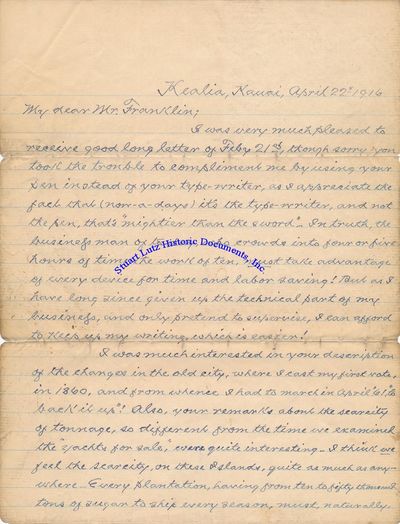 Kealia, Kauai, April 22d 1916
My dear Mr. Franklin;
I was very much pleased to
receive good long letter of Feby 21st, though sorry you
took the trouble to compliment me by using your
pen instead of your type-writer, as I appreciate the
fact that (now-a-days) it's the type-writer, and not
the pen, that's "mightier than the sword". In truth, the
business man of crowds into four or five
hours of time the work of ten, must take advantage
of every device for time and labor saving! But as I
have long since given up the technical part of my
business, and only pretend to supervise, I can afford
to keep up my writing, which is easier!
I was much interested in your description
of the changes in the old city, where I cast my first vote,
in 1860, and from whence I had to march in April '61, "to
back it up"! Also, your remarks about the scarcity
of tonnage, so different from the time we examined
the "yachts for sale," were quite interesting. I think we
feel the scarcity, on these Islands, quite as much as any-
where. Every plantation, having from ten to fifty thousand
tons of sugar to ship every season, must, naturally
Stuart Lutz Historic Documents, Inc.